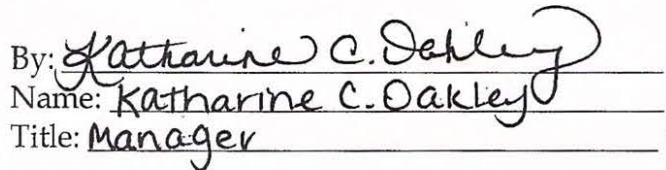 By: Katharine C. Oakley
Name: Katharine C. Oakley
Title: Manager